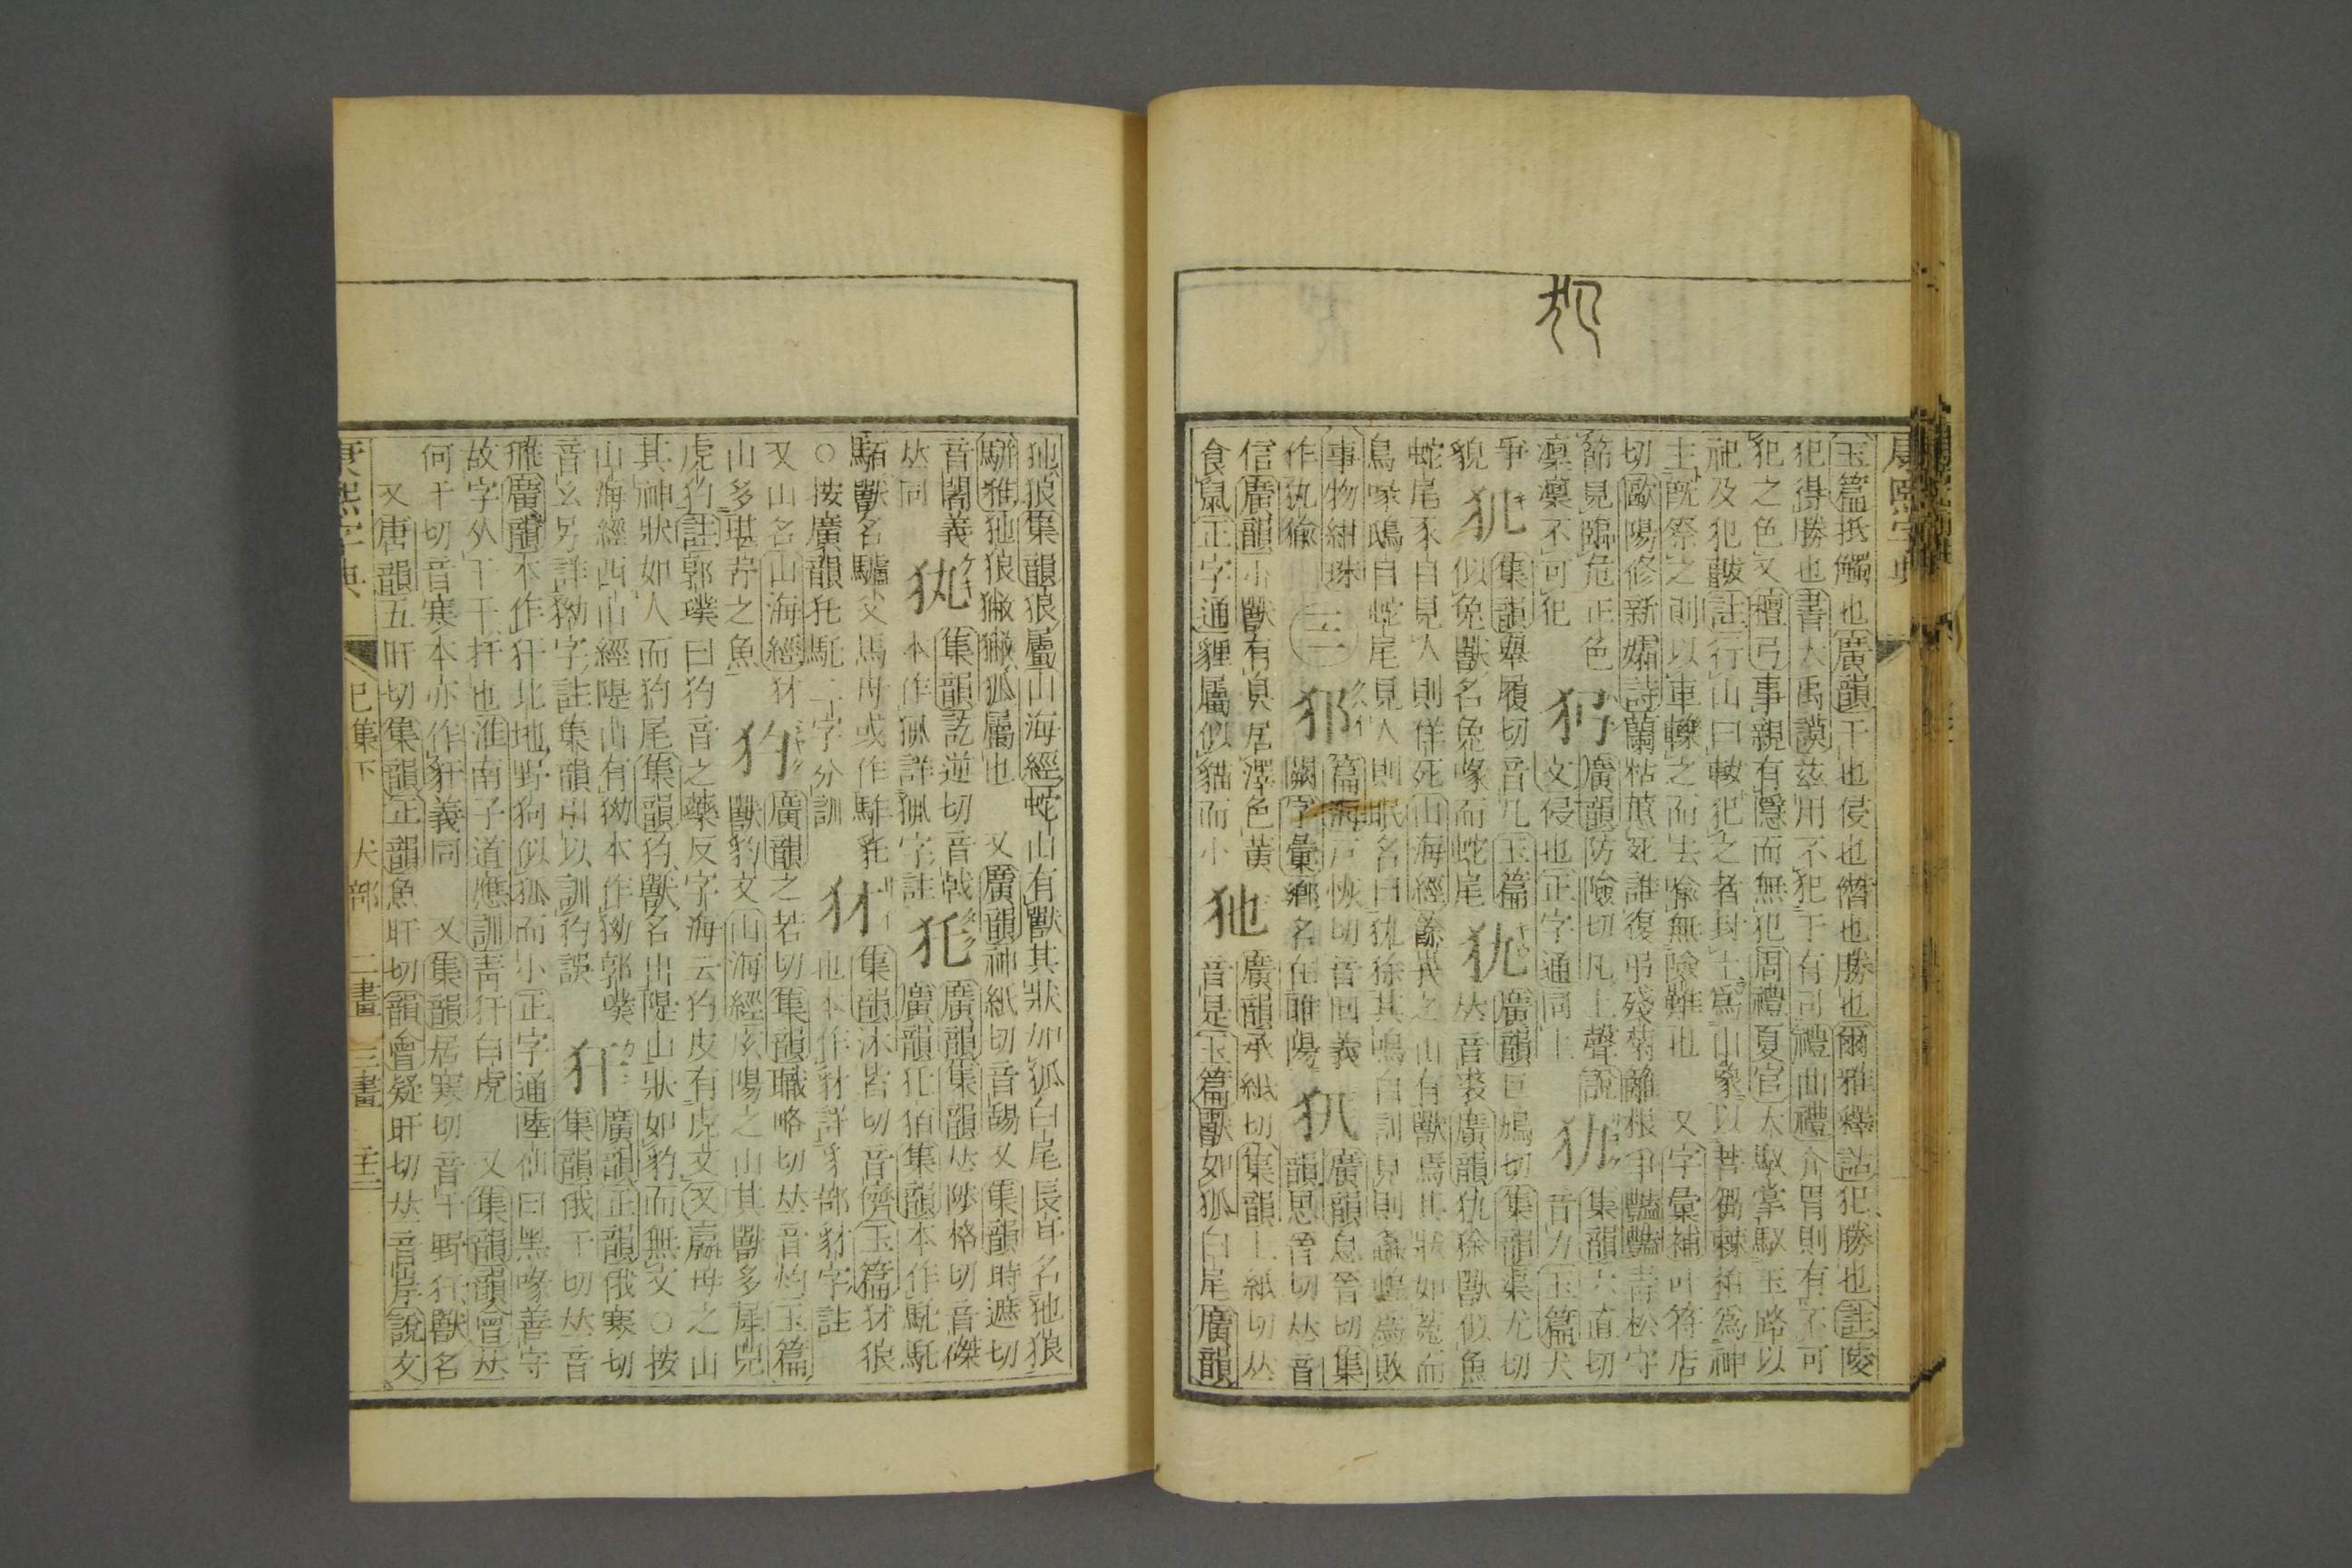 康熙字典
玉篇抵觸也廣韻干也侵也僭也勝也爾雅釋詁犯勝也註陵
犯得勝也書大禹謨茲用不犯于有司禮曲禮介冑則有不可
犯之色又檀弓事親有隱而無犯周禮夏官大馭掌馭玉路以
祀及犯軷註行山曰軷犯之者封土爲山象以菩芻棘柏爲神
主旣祭之則以車轢之而去喻無險難也 又字彙補叶符店
切歐陽修新霜詩蘭枯蕙死誰復弔殘菊籬根爭豔豔靑松守
節見臨危正色 廣韻防險切凡上聲說 集韻六直切
凜凜不可犯 文侵也正字通同上 音力玉篇犬
爭 集韻舉履切音几玉篇 犰 廣韻巨鳩切集韻渠尤切
貌 似兔獸名兔喙而蛇尾 𠀤音裘廣韻犰狳獸似魚
蛇尾豕目見人則佯死山海經餘峩之山有獸焉其狀如菟而
鳥喙鴟目蛇尾見人則眠名曰犰狳其鳴自訓見則螽蝗爲敗
事物紺珠 篇海戸恢切音回義 廣韻息晉切集
作犰狳 三 闕字彙鄉名在睢陽 犼 韻思晉切𠀤音
信廣韻小獸有臭居澤色黃 廣韻承紙切集韻上紙切𠀤
食鼠正字通貍屬似貓而小 㹝 音是玉篇獸如狐白尾廣韻
㹝狼集韻狼屬山海經蛇山有獸其狀如狐白尾長耳名㹝狼
駢雅㹝狼獙獙狐屬也 又廣韻神紙切音舓又集韻時遮切
音闍義同 集韻訖逆切音戟 廣韻集韻𠀤陟格切音磔
𠀤同 本作㹣詳㹣字註 㹡 廣韻㹡㹮集韻本作馲馲
駞獸名驢父馬母或作駹㹡 集韻牀皆切音儕玉篇犲狼
○按廣韻㹡馲二字分訓 犲 也本作豺詳豸部豺字註
又山名山海經犲 廣韻之若切集韻職略切𠀤音灼玉篇
山多堪㐨之魚 犳 獸豹文山海經底陽之山其獸多犀兕
虎犳註郭璞曰犳音之藥反字海云犳皮有虎文又羸母之山
其神狀如人而犳尾集韻犳獸名出隄山狀如豹而無文○按
山海經西山經隄山有㺃本作㺃郭璞 廣韻正韻俄寒切
音幺另詳㺃字註集韻引以訓犳誤 犴 集韻俄干切𠀤音
飛廣韻本作犴北地野狗似狐而小正字通陸佃曰黑喙善守
故字从干干扞也淮南子道應訓靑犴白虎 又集韻韻會𠀤
何干切音寒本亦作豻義同 又集韻居寒切音干䝙犴獸名
又唐韻五旰切集韻正韻魚旰切韻會疑旰切𠀤音岸說文
康熙字典 巳集下 犬部 二畫 三畫